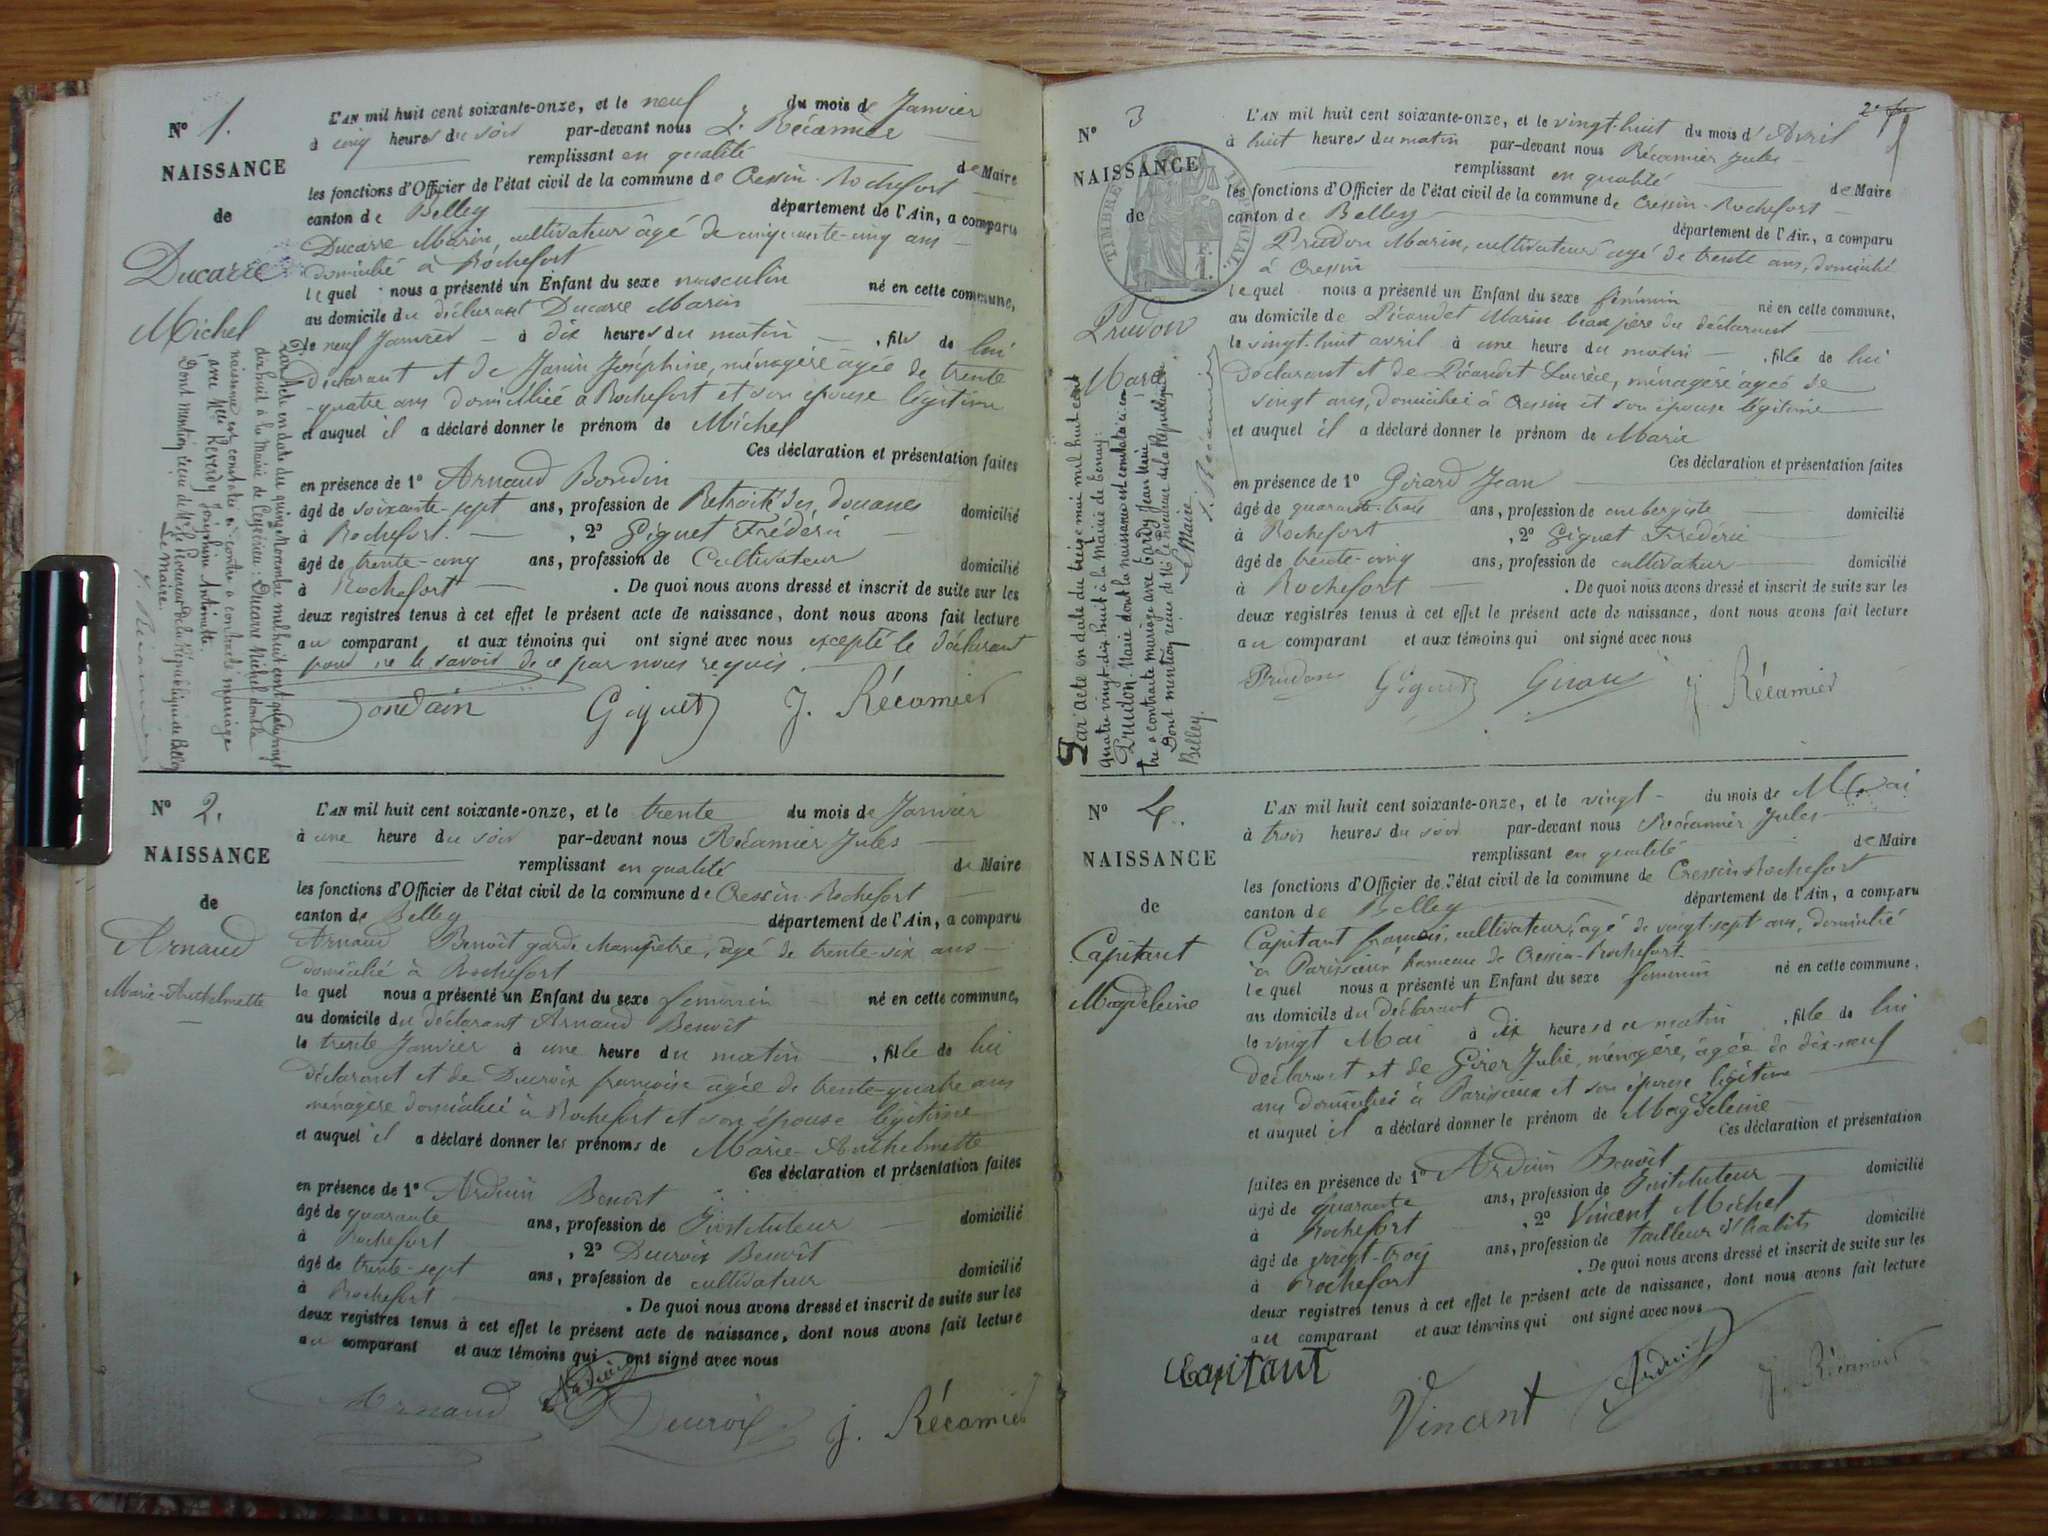 N° 1.
NAISSANCE
de
Ducarre
Michel
L'AN mil huit cent soixante-onze, et le neuf du mois de Janvier
à cinq heures du soir par-devant nous J. Récamier
remplissant en qualité de Maire
les fonctions d'Officier de l'état civil de la commune de Cressin-Rochefort
canton de Belley département de l'Ain, a comparu
Ducarre Marin, cultivateur âgé de cinquante-cinq ans
domicilié à Rochefort
lequel nous a présenté un Enfant du sexe masculin né en cette commune,
au domicile du déclarant Ducarre Marin
le neuf Janvier à dix heures du matin, fils de lui
déclarant et de Janin Joséphine, ménagère âgée de trente
-quatre ans domiciliée à Rochefort et son épouse légitime
et auquel il a déclaré donner le prénom de Michel
Ces déclaration et présentation faites
en présence de 1° Arnaud Bondin
âgé de soixante-sept ans, profession de Retraité des douanes domicilié
à Rochefort. , 2° Giguet Frédéric
âgé de trente-cinq ans, profession de Cultivateur domicilié
à Rochefort . De quoi nous avons dressé et inscrit de suite sur les
deux registres tenus à cet effet le présent acte de naissance, dont nous avons fait lecture
au comparant et aux témoins qui ont signé avec nous excepté le déclarant
pour ne le savoir de ce par nous requis.
Giguet J. Récamier
Par acte en date du quinze Novembre mil huit cent quatre vingt
dix huit à la Mairie de Ducarre Michel dont la
naissance est constatée ci-contre a contracté mariage
avec Mlle Reverdy Joséphine Antoinette.
Dont mention reçue de Mr le Procureur de la République de Belley
Le Maire.
J. Récamier
N° 2.
NAISSANCE
de
Arnaud
Marie-Anthelmette
L'AN mil huit cent soixante-onze, et le trente du mois de Janvier
à une heure du soir par-devant nous Récamier Jules
remplissant en qualité de Maire
les fonctions d'Officier de l'état civil de la commune de Cressin-Rochefort
canton de Belley département de l'Ain, a comparu
Arnaud Benoît garde champêtre, âgé de trente-six ans
domicilié à Rochefort
lequel nous a présenté un Enfant du sexe féminin né en cette commune,
au domicile du déclarant Arnaud Benoît
le trente Janvier à une heure du matin, fille de lui
déclarant et de Ducroix françoise âgée de trente-quatre ans
ménagère domiciliée à Rochefort et son épouse légitime
et auquel il a déclaré donner les prénoms de Marie-Anthelmette
Ces déclaration et présentation faites
en présence de 1° Arduin Benoît
âgé de quarante ans, profession de Instituteur domicilié
à Rochefort , 2° Ducroix Benoît
âgé de trente-sept ans, profession de cultivateur domicilié
à Rochefort . De quoi nous avons dressé et inscrit de suite sur les
deux registres tenus à cet effet le présent acte de naissance, dont nous avons fait lecture
au comparant et aux témoins qui ont signé avec nous
Arnaud Arduin Ducroix J. Récamier
2e
N° 3
NAISSANCE
de
TIMBRE IMPÉRIAL
1 F.
Prudon
Marie
L'AN mil huit cent soixante-onze, et le vingt-huit du mois d'Avril
à huit heures du matin par-devant nous Récamier Jules
remplissant en qualité de Maire
les fonctions d'Officier de l'état civil de la commune de Cressin-Rochefort
canton de Belley département de l'Ain, a comparu
Prudon Marin, cultivateur âgé de trente ans, domicilié
à Cressin
lequel nous a présenté un Enfant du sexe féminin né en cette commune,
au domicile de Picaudet Marin beau père du déclarant
le vingt-huit avril à une heure du matin, fille de lui
déclarant et de Picaudet Lucrèce, ménagère âgée de
vingt ans, domiciliée à Cressin et son épouse légitime
et auquel il a déclaré donner le prénom de Marie
Ces déclaration et présentation faites
en présence de 1° Girard Jean
âgé de quarante-trois ans, profession de aubergiste domicilié
à Rochefort , 2° Giguet Frédéric
âgé de trente-cinq ans, profession de cultivateur domicilié
à Rochefort . De quoi nous avons dressé et inscrit de suite sur les
deux registres tenus à cet effet le présent acte de naissance, dont nous avons fait lecture
au comparant et aux témoins qui ont signé avec nous
Prudon Giguet Girard J. Récamier
Par acte en date du treize mai mil huit cent
quatre vingt-dix huit à la Mairie de
Prudon Marie dont la naissance est constatée ci-con
tre a contracté mariage avec Jean Marie
Dont mention reçue de Mr le Procureur de la République de
Belley. Le Maire
J. Récamier
N° 4.
NAISSANCE
de
Capitant
Magdeleine
L'AN mil huit cent soixante-onze, et le vingt du mois de Mai
à trois heures du soir par-devant nous Récamier Jules
remplissant en qualité de Maire
les fonctions d'Officier de l'état civil de la commune de Cressin-Rochefort
canton de Belley département de l'Ain, a comparu
Capitant françois, cultivateur, âgé de vingt sept ans, domicilié
à Parissieu hameau de Cressin-Rochefort
lequel nous a présenté un Enfant du sexe féminin né en cette commune,
au domicile du déclarant
le vingt Mai à dix heures du matin, fille de lui
déclarant et de Girer Julie, ménagère, âgée de dix-neuf
ans domiciliée à Parissieu et son épouse légitime
et auquel il a déclaré donner le prénom de Magdeleine
Ces déclaration et présentation
faites en présence de 1° Arduin Benoît
âgé de quarante ans, profession de Instituteur domicilié
à Rochefort , 2° Vincent Michel
âgé de vingt-trois ans, profession de tailleur d'habits domicilié
à Rochefort . De quoi nous avons dressé et inscrit de suite sur les
deux registres tenus à cet effet le présent acte de naissance, dont nous avons fait lecture
au comparant et aux témoins qui ont signé avec nous
Capitant Vincent Arduin J. Récamier